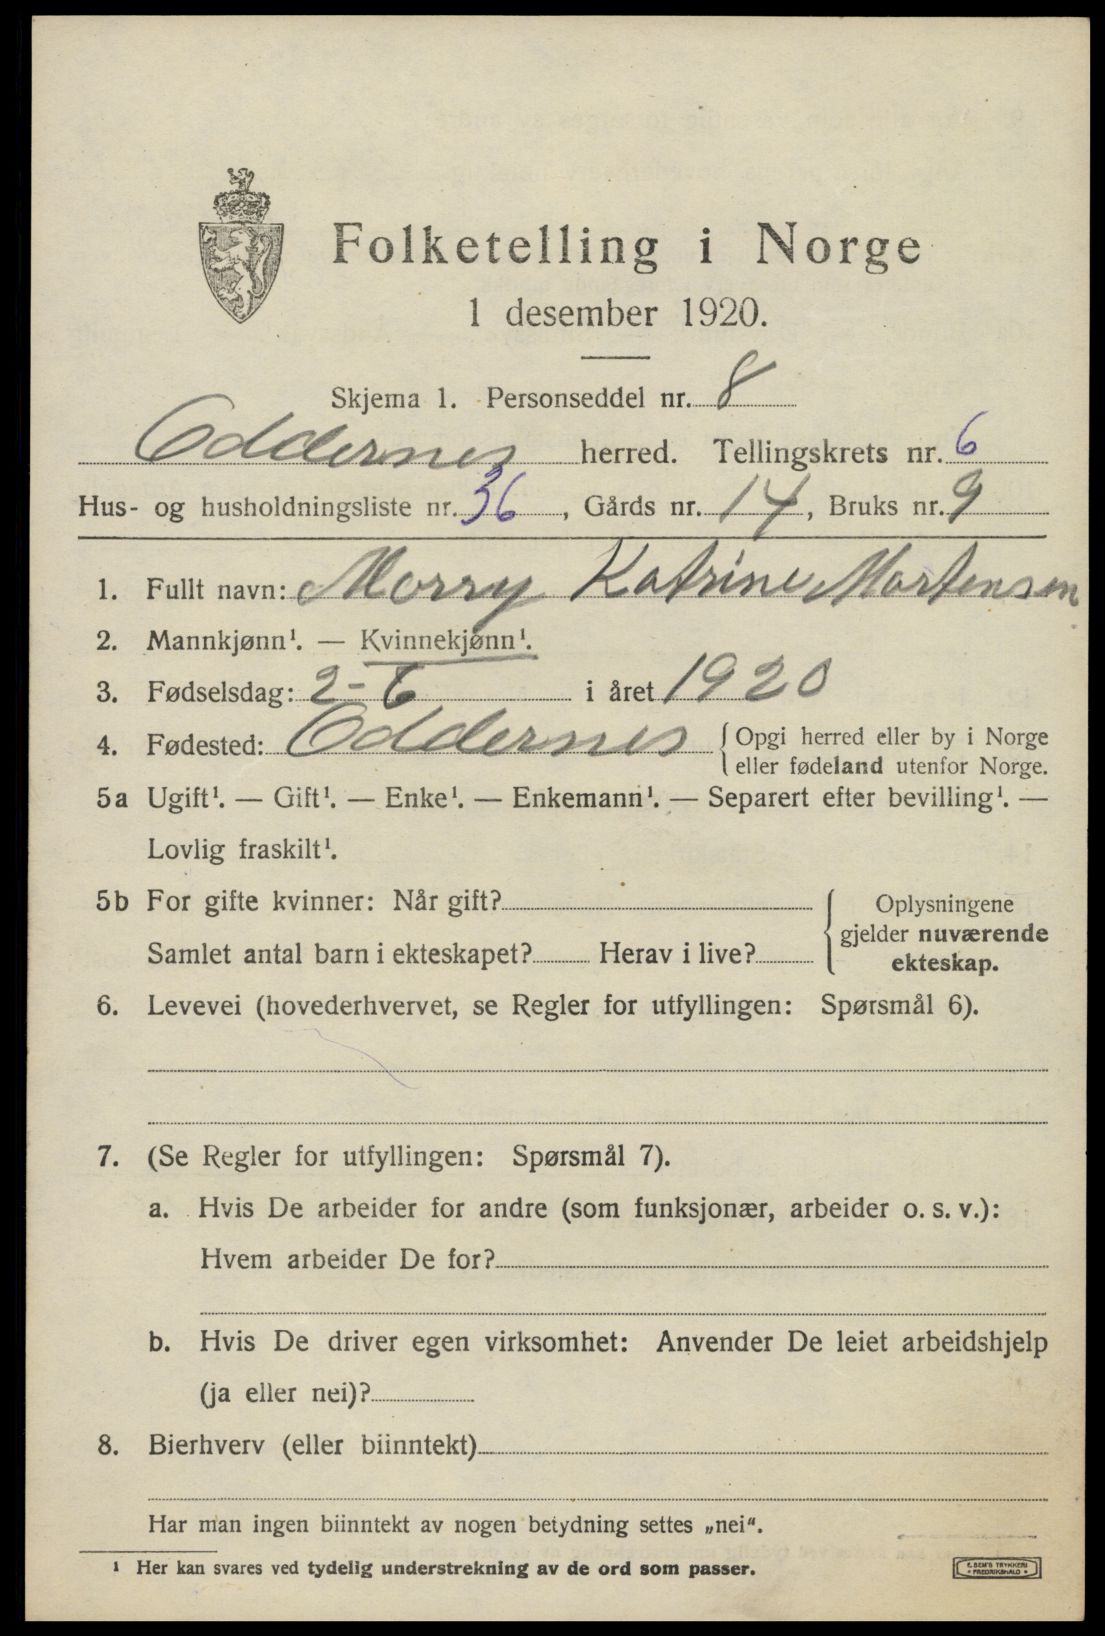 Folketelling i Norge
1 desember 1920.
Skjema 1. Personseddel nr. 8
Oddernes herred. Tellingskrets nr. 6
Hus- og husholdningsliste nr. 36, Gårds nr. 14, Bruks nr. 9
1. Fullt navn: Morry Katrine Mortensen
2. Mannkjønn¹. — Kvinnekjønn¹.
3. Fødselsdag: 2-6 i året 1920
4. Fødested: Oddernes { Opgi herred eller by i Norge
eller fødeland utenfor Norge.
5a Ugift¹. — Gift¹. — Enke¹. — Enkemann¹. — Separert efter bevilling¹. —
Lovlig fraskilt¹.
5b For gifte kvinner: Når gift?
Samlet antal barn i ekteskapet? Herav i live?
Oplysningene
gjelder nuværende
ekteskap.
6. Levevei (hovederhvervet, se Regler for utfyllingen: Spørsmål 6).
7. (Se Regler for utfyllingen: Spørsmål 7).
a. Hvis De arbeider for andre (som funksjonær, arbeider o. s. v.):
Hvem arbeider De for?
b. Hvis De driver egen virksomhet: Anvender De leiet arbeidshjelp
(ja eller nei)?
8. Bierhverv (eller biinntekt)
Har man ingen biinntekt av nogen betydning settes „nei“.
¹ Her kan svares ved tydelig understrekning av de ord som passer.
E. SEM'S TRYKKERI
FREDRIKSHALD